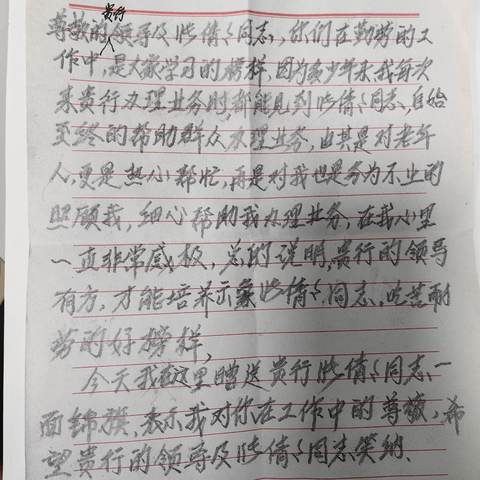 尊敬的贵行领导及陈倩倩同志,你们在勤劳的工
作中,是大家学习的榜样,因为多少年来我每次
来贵行办理业务时,都能见到陈倩倩同志,自始
至终的帮助群众办理业务,由其是对老年
人,更是热心帮忙,再是对我也是务为不止的
照顾我,细心帮助我办理业务,在我心里
一直非常感极,总的说明,贵行的领导
有方,才能培养示陈倩倩同志,吃苦耐
劳的好榜样,
今天我在这里赠送贵行陈倩倩同志一
面锦旗,表示我对你在工作中的尊敬,希
望贵行的领导及陈倩倩同志笑纳.